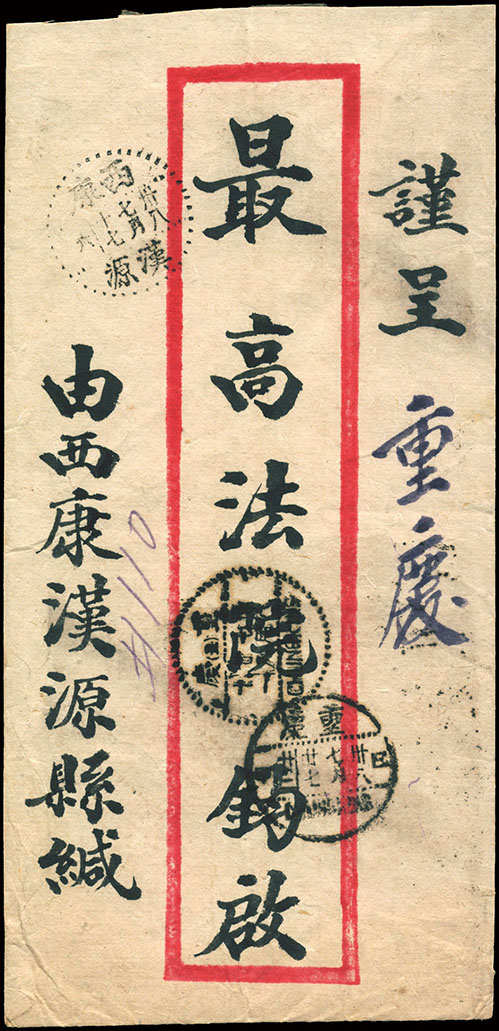 謹呈
重慶
最高法院鈞啟
由西康漢源縣緘
西康
卅八
七月
十七
漢源
重慶
卅八
七月
廿七